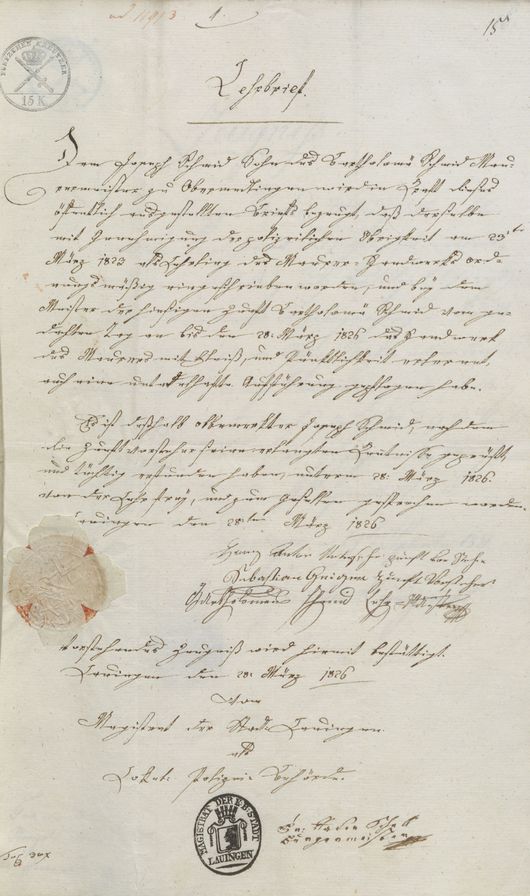 ad 11913 1. 15
FÜNFZEHEN KREUTZER
15 K
Lehrbrief.
Dem Joseph Schmid Sohn des Bartholomä Schmid Mau-
rermeister zu Obermedlingen wird in Kraft dieses
öffentlich ausgestellten Briefs bezeugt, daß derselbe
mit Genehmigung der polizeilichen Obrigkeit am 23ten
März 1823 als Lehrling des Maurer-Handwerks ord-
nungsmäßig eingeschrieben worden, und bey dem
Meister der hiesigen Zunft Bartholomä Schmid vom ge-
dachten Tag an bis den 28. März 1826 das Handwerk
des Maurers mit Fleiß, und Pünktlichkeit erlernet,
auch eine untadelhafte Aufführung gepflogen habe.
Es ist deßhalb obbemerkter Joseph Schmid, nachdem
die Zunftvorsteher seine erlangten Kenntnisse geprüft,
und tüchtig erfunden haben, unterm 28. März 1826.
von der Lehre frey, und zum Gesellen gesprochen worden.
Lauingen den 28ten März 1826
Anton Zunft
Sebastian Zunft Vorsteher
Bartholomeus Schmid Lehr-Meister
Vorstehendes Zeugniß wird hiermit bestättigt.
Lauingen den 28. März 1826
Vom
Magistrat der Stadt Lauingen
als
Lokal-Polizei-Behörde.
MAGISTRAT DER K.B. STADT
LAUINGEN
Bürgermeister